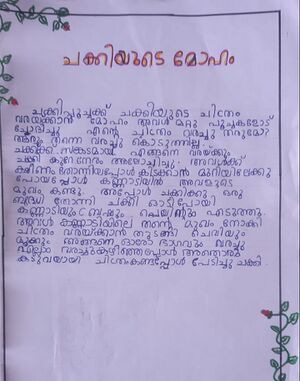 ചക്കിയുടെ മോഹം
ചക്കിപൂച്ചക്ക് ചക്കിയുടെ ചിത്രം
വരയ്ക്കാൻ മോഹം അവൾ മറ്റു പൂച്ചകളോട്
ചോദിച്ചു എൻ്റെ ചിത്രം വരച്ചു തരുമോ?
ആരും തന്നെ വരച്ചു കൊടുത്തില്ല..
ചക്കിക്ക് സങ്കടമായി എങ്ങനെ വരയ്ക്കും
ചക്കി കുറേനേരം ആലോചിച്ചു. അവൾക്ക്
ക്ഷീണം തോന്നിയപ്പോൾ കിടക്കാൻ മുറിയിലേക്കു
പോയപ്പോൾ കണ്ണാടിയിൽ അവളുടെ
മുഖം കണ്ടു. അപ്പോൾ ചക്കിക്കു ഒരു
ബുദ്ധി തോന്നി ചക്കി ഓടിപ്പോയി
കണ്ണാടിയും ബ്രഷും പെയിൻ്റും എടുത്തു.
അവൾ കണ്ണാടിയിലെ തൻ്റെ മുഖം നോക്കി
ചിത്രം വരയ്ക്കാൻ തുടങ്ങി ചെവിയും
മൂക്കും അങ്ങനെ ഓരോ ഭാഗവും വരച്ചു
എല്ലാം വരച്ചുകഴിഞ്ഞപ്പോൾ അതൊരു
കടുവയായി ചിത്രംകണ്ടപ്പോൾ പേടിച്ചു ചക്കി.